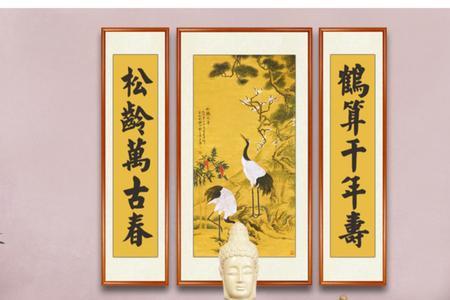 鶴算千年壽
松齡萬古春